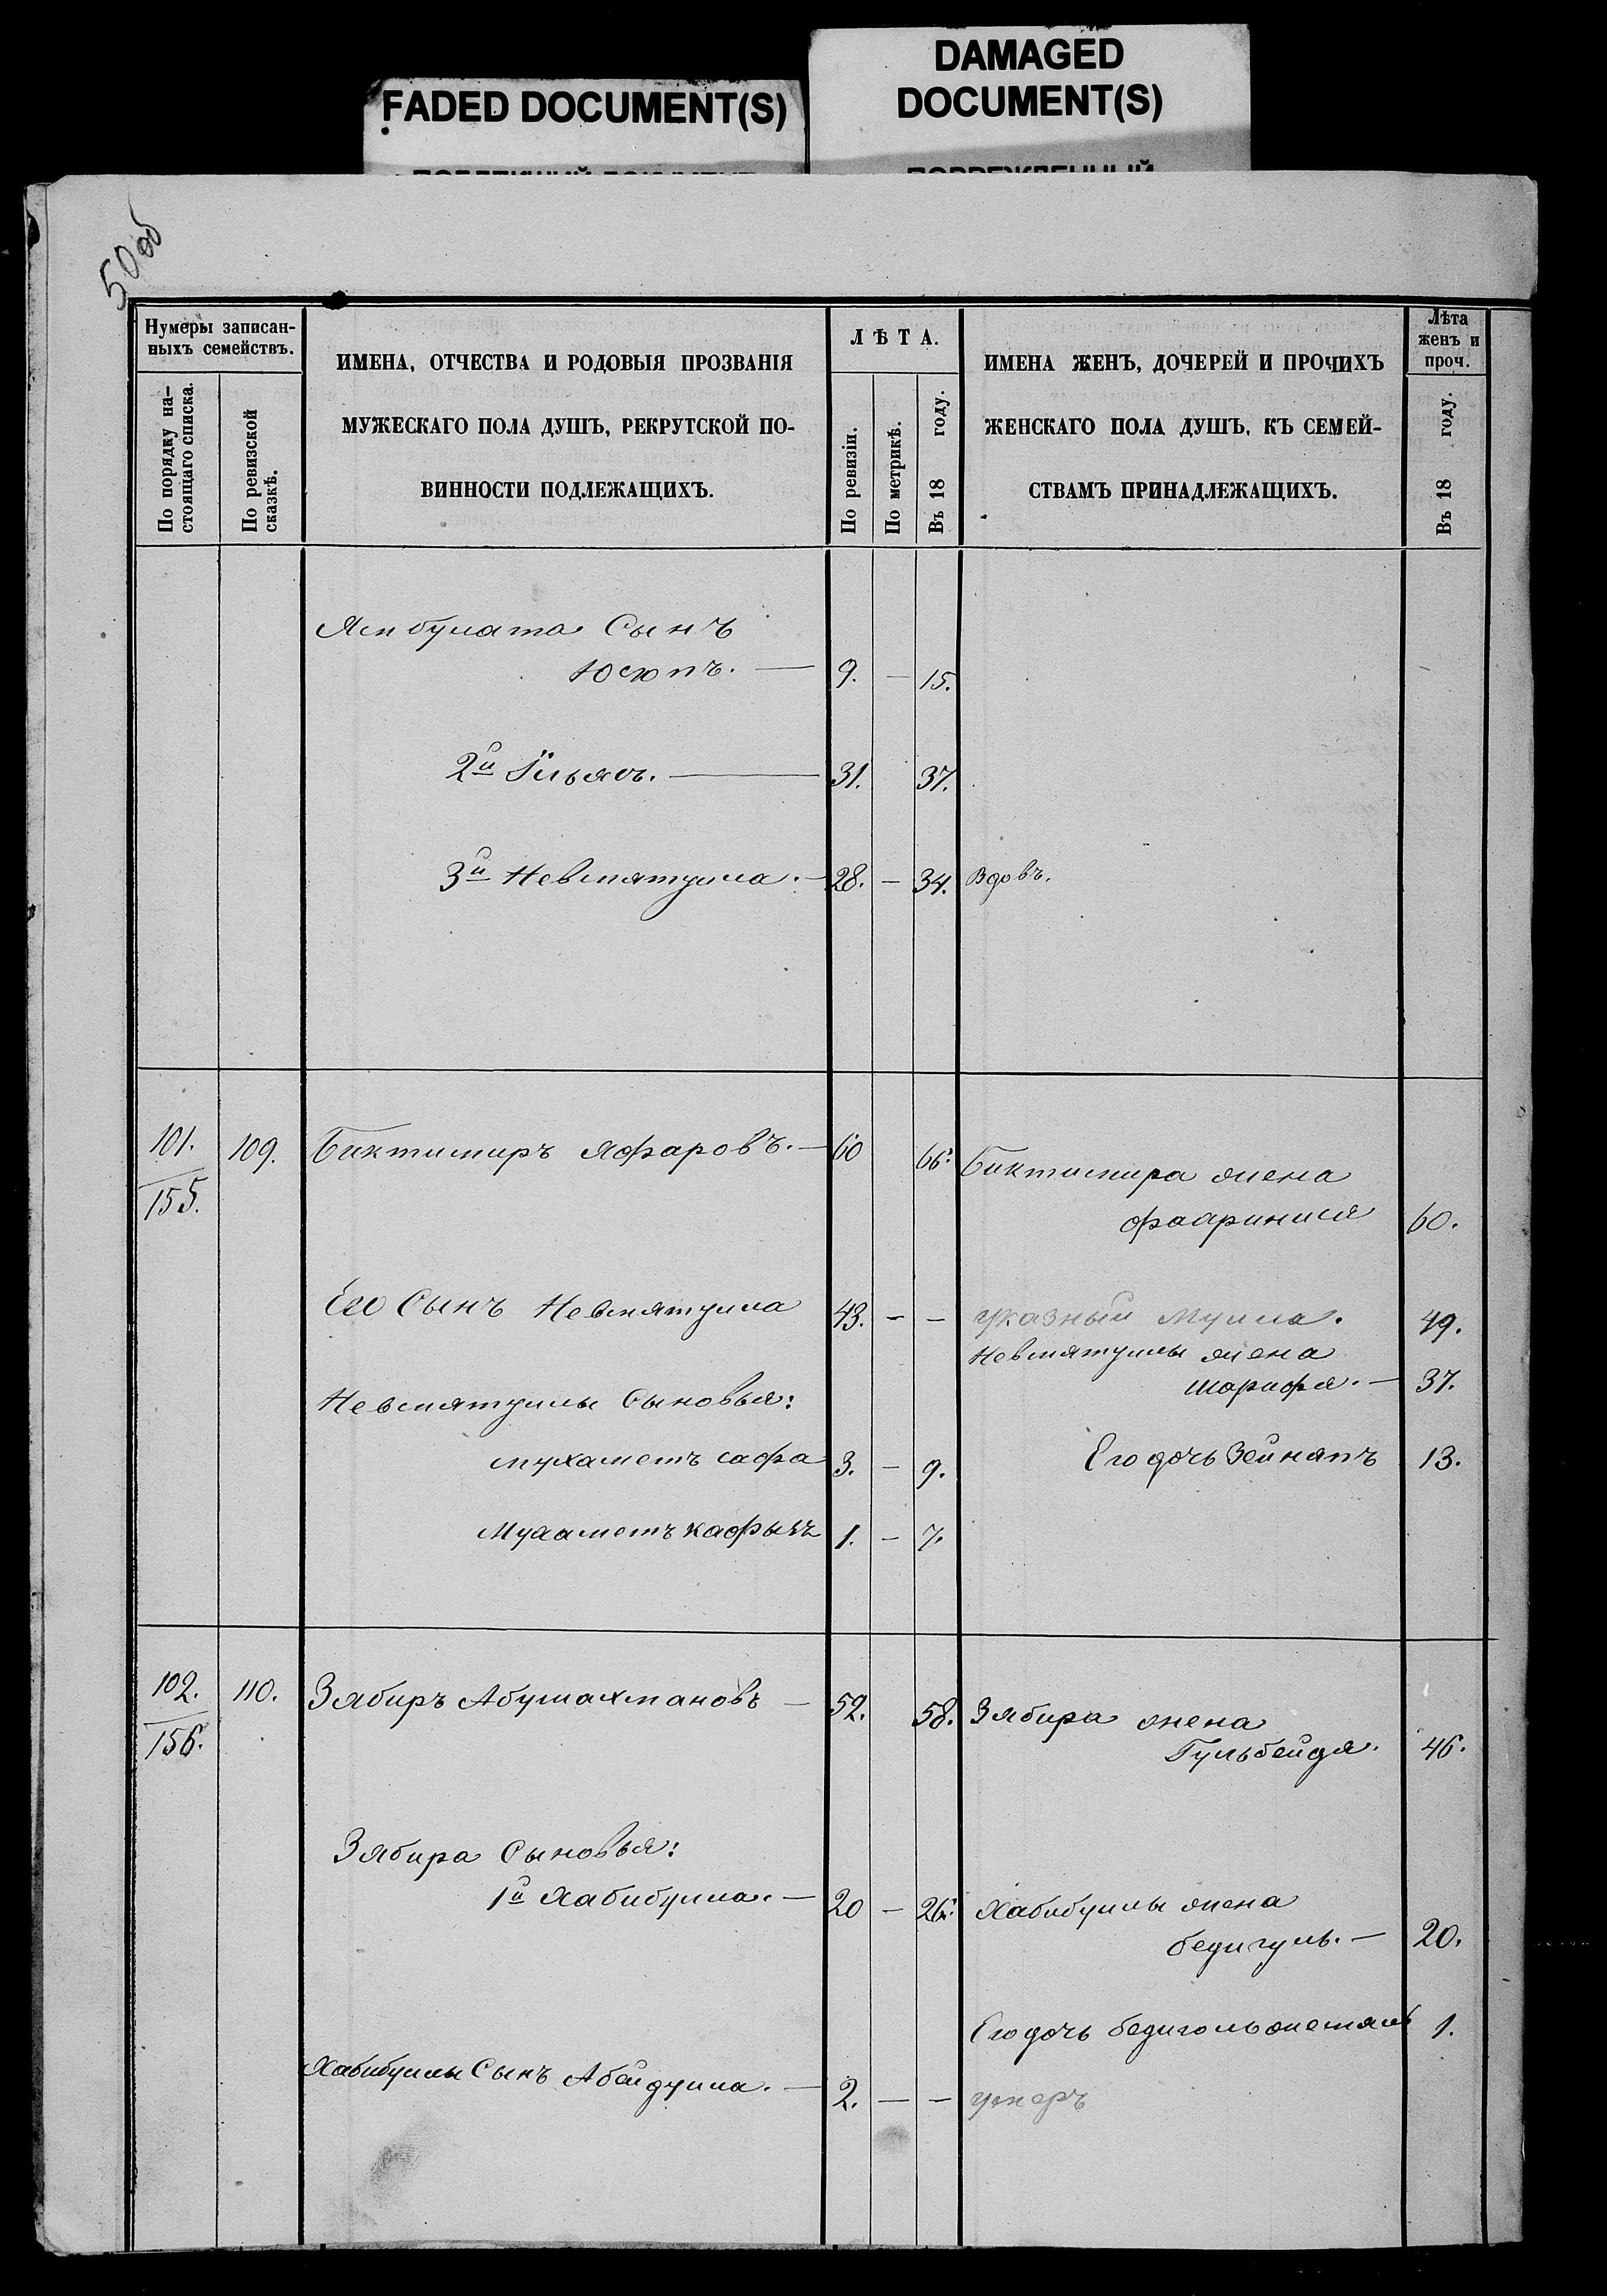 FADED DOCUMENT(S)
DAMAGED
DOCUMENT(S)
50 об
Нумеры записан-
ныхъ семействъ.
По порядку на-
стоящаго списка.
По ревизской
сказкѣ.
ИМЕНА, ОТЧЕСТВА И РОДОВЫЯ ПРОЗВАНІЯ
МУЖЕСКАГО ПОЛА ДУШЪ, РЕКРУТСКОЙ ПО-
ВИННОСТИ ПОДЛЕЖАЩИХЪ.
ЛѢТА.
По ревизіи.
По метрикѣ.
Въ 18 году.
ИМЕНА ЖЕНЪ, ДОЧЕРЕЙ И ПРОЧИХЪ
ЖЕНСКАГО ПОЛА ДУШЪ, КЪ СЕМЕЙ-
СТВАМЪ ПРИНАДЛЕЖАЩИХЪ.
Лѣта
женъ и
проч.
Въ 18 году.
Сынъ
Юсюпъ. — 9. — 15.
2й Ильяс. — 31. 37.
3й Невмятулла. — 28. — 34. Вдовъ.
101. 109. Биктимиръ Яфаровъ. — 60 66. Биктимира жена
155.
60.
Его Сынъ Невмятулла 43. — — указный Мулла. 49.
Невмятуллы жена
Шарифя. — 37.
Невмятуллы Сыновья:
Мухаметъ сафа 3. — 9. Его дочь Зейняпъ 13.
Мухаметъ 1. — 7.
102. 110. Зябиръ — 52. 58. Зябира жена
156. Гульбейдя. 46.
Зябира Сыновья:
1й Хабибулла. — 20 — 26. Хабибуллы жена
бедигуль. — 20.
Его дочь 1.
Хабибуллы Сынъ Абейдулла. — 2. — — умеръ